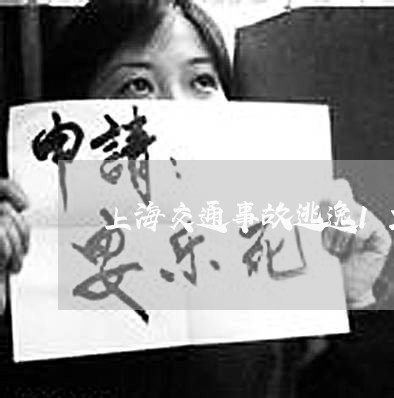 申請：
上海交通事故逃逸/
安乐死